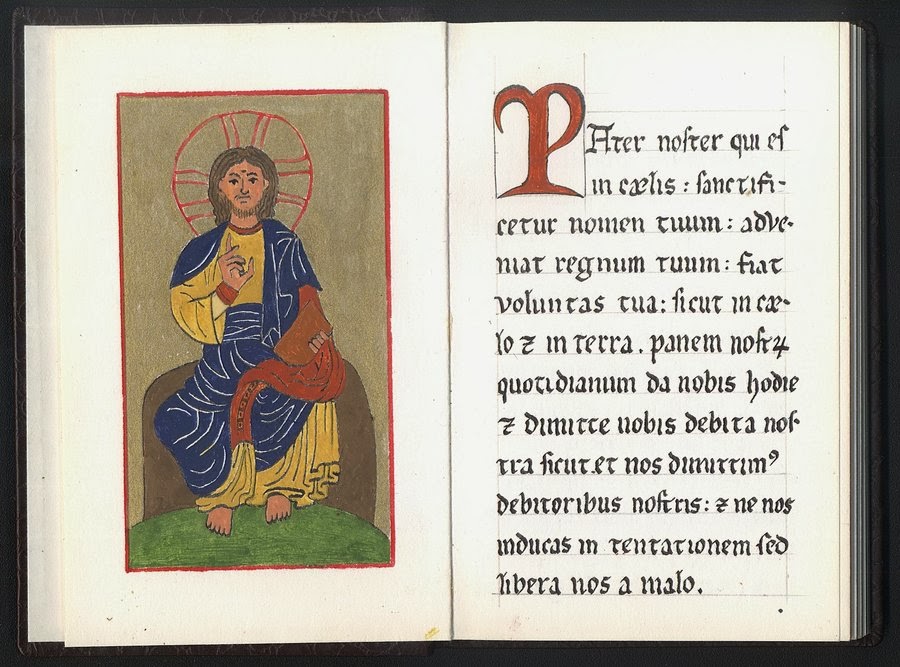 PAter noſter qui eſ
in cælis : ſanctifi-
cetur nomen tuum : adve-
niat regnum tuum : fiat
voluntas tua : ſicut in cæ-
lo ⁊ in terra . panem noſtꝝ
quotidianum da nobis hodie
⁊ dimitte nobis debita noſ-
tra ſicut et nos dimittimꝰ
debitoribus noſtris : ⁊ ne nos
inducas in tentationem ſed
libera nos a malo .